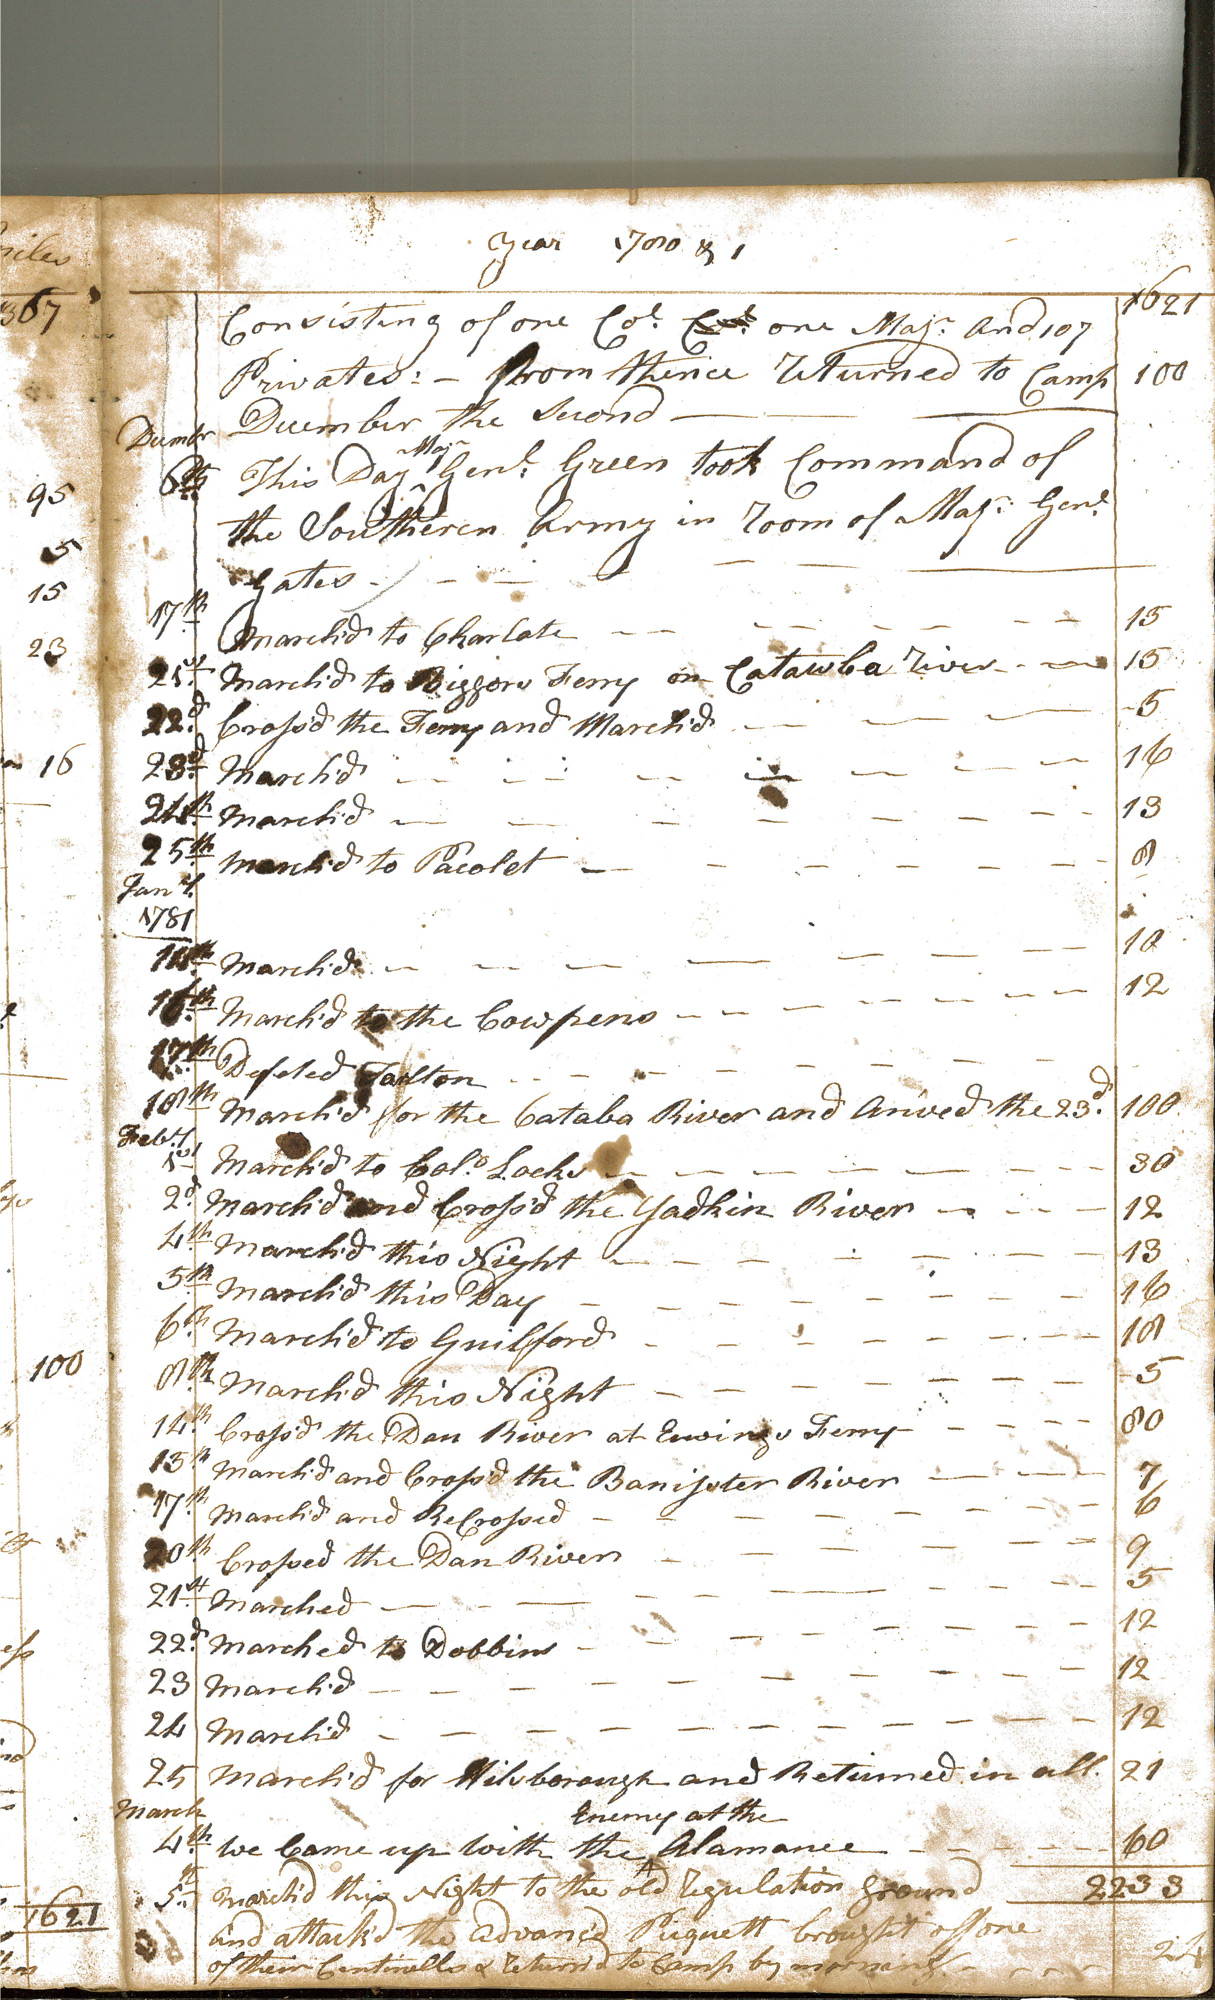 Year 1780 & 1
miles
367
1621
Consisting of one Col. one Majr. And 107
Privates: – From thence Returned to Camp 100
December the Second
Decmbr
6th This Day Majr Genl. Green took Command of
95
the Southeren Army in Room of Majr. Genl.
5
Gates
15
17th March'd to Charlote 15
23
21st March'd to Biggers Ferry on Catawba River 15
22d Cross'd the Ferry and March'd 5
16
23d March'd 16
24th March'd 13
25th March'd to Pacolet 8
Jany.
1781
14th March'd 10
16th March'd to the Cowpens 12
17th Defeted Tarlton
18th March'd for the Cataba River and Arived the 23d. 100
Feby.
1st March'd to Col. Locks 30
2d March'd and Cross'd the Yadkin River 12
4th March'd this Night 13
5th March'd this Day 16
6th March'd to Guilford 18
100
8th March'd this Night 5
14th Cross'd the Dan River at Ewings Ferry 80
15th March'd and Cross'd the Banister River 7
17th March'd and ReCrossed 6
20th Crossed the Dan River 9
21st Marched 5
22d Marched to Dobbins 12
23 March'd 12
24 March'd 12
25 March'd for Hilsborough and Returned in all. 21
March
Enemy at the
4th we Came up with the Alamance 60
2233
5th March'd this Night to the old Regulation ground
1621
and attack'd the advanc'd Piquett brought off one
of their Centinells & Return'd to Camp by morning 24